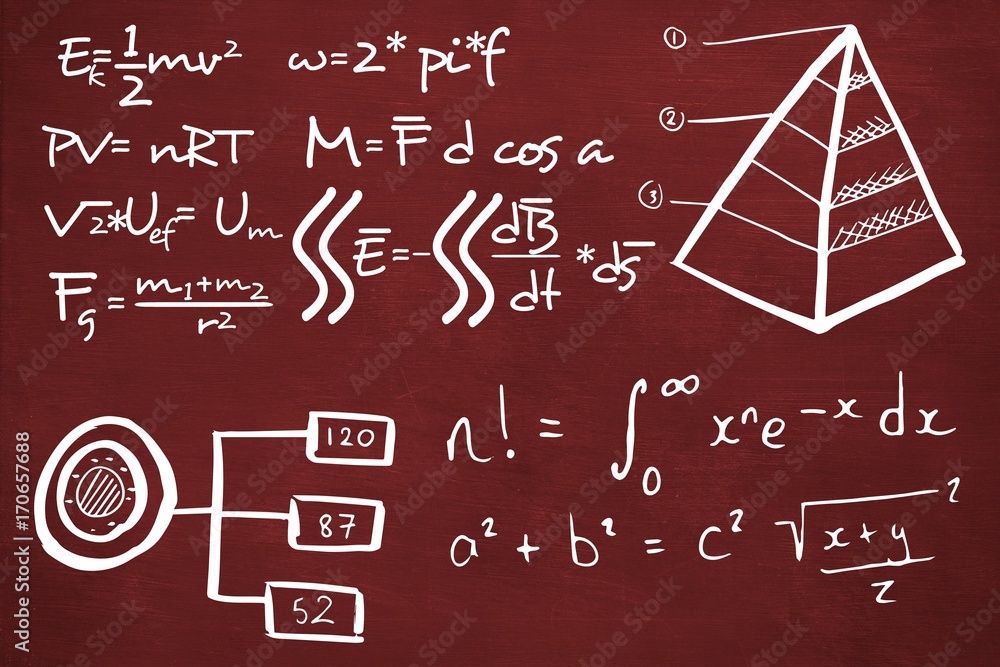 E_k = 1/2 mv²
ω = 2 * pi * f
PV = nRT
M = F̅ d cos a
√2 * U_ef = U_m
∫∫ E̅ = - ∫∫ dB̅/dt * ds̅
F_g = m₁+m₂ / r²
①
②
③
120
87
52
n! = ∫₀^∞ xⁿ e^-x dx
a² + b² = c²
√x+y² / z
Adobe Stock | #170657688